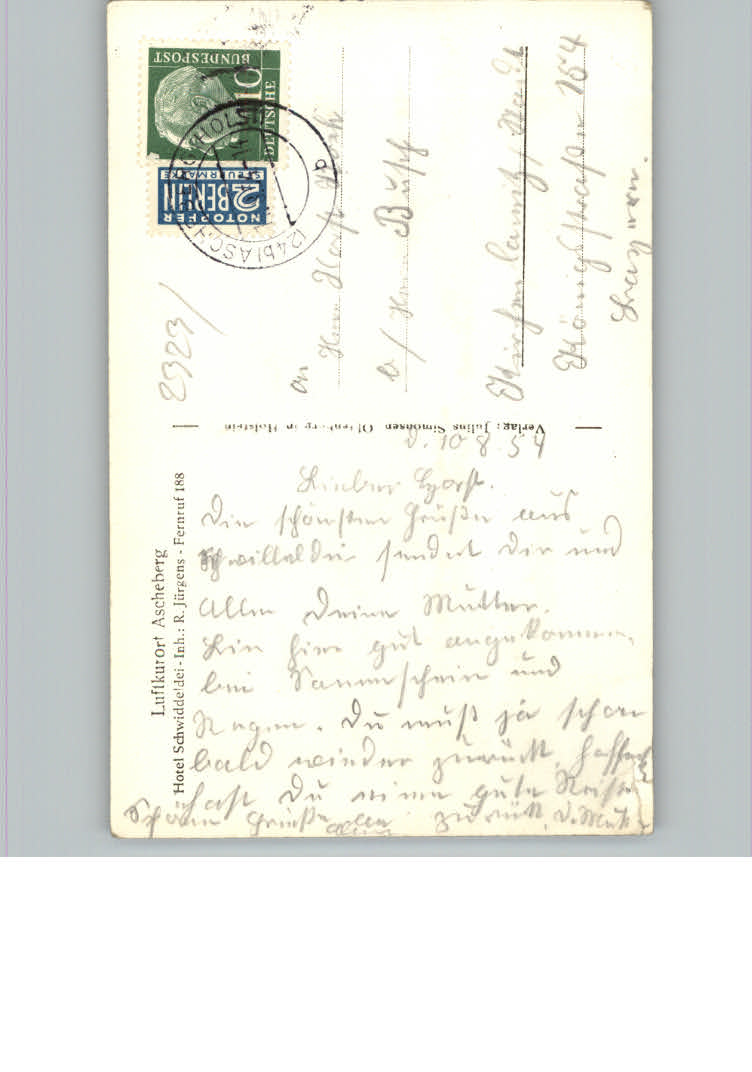 Luftkurort Ascheberg
Hotel Schwiddeldei - Inh.: R. Jürgens - Fernruf 188
D. 10 8. 54
Lieber Horst.
Die schönsten Grüße aus
Schwiddeldei sendet Dir und
Allen Deine Mutter.
Bin hier gut angekommen,
bei Sonnenschein und
Regen. Du mußt ja schon
bald wieder zurück, hoffentl.
hast Du eine gute Reise
zurück, D. Mutt
Schöne Grüße allen
Verlag: Julius Simonsen Oldenburg in Holstein
2323/
An
Herrn Horst
b/ Herrn Busch
Kirchenlamitz, Stadt
Königstraße 154
Bayern.
DEUTSCHE
BUNDESPOST
10
NOTOPFER
2 BERLIN
STEUERMARKE
(24b) ASCHEBERG (HOLST)
b